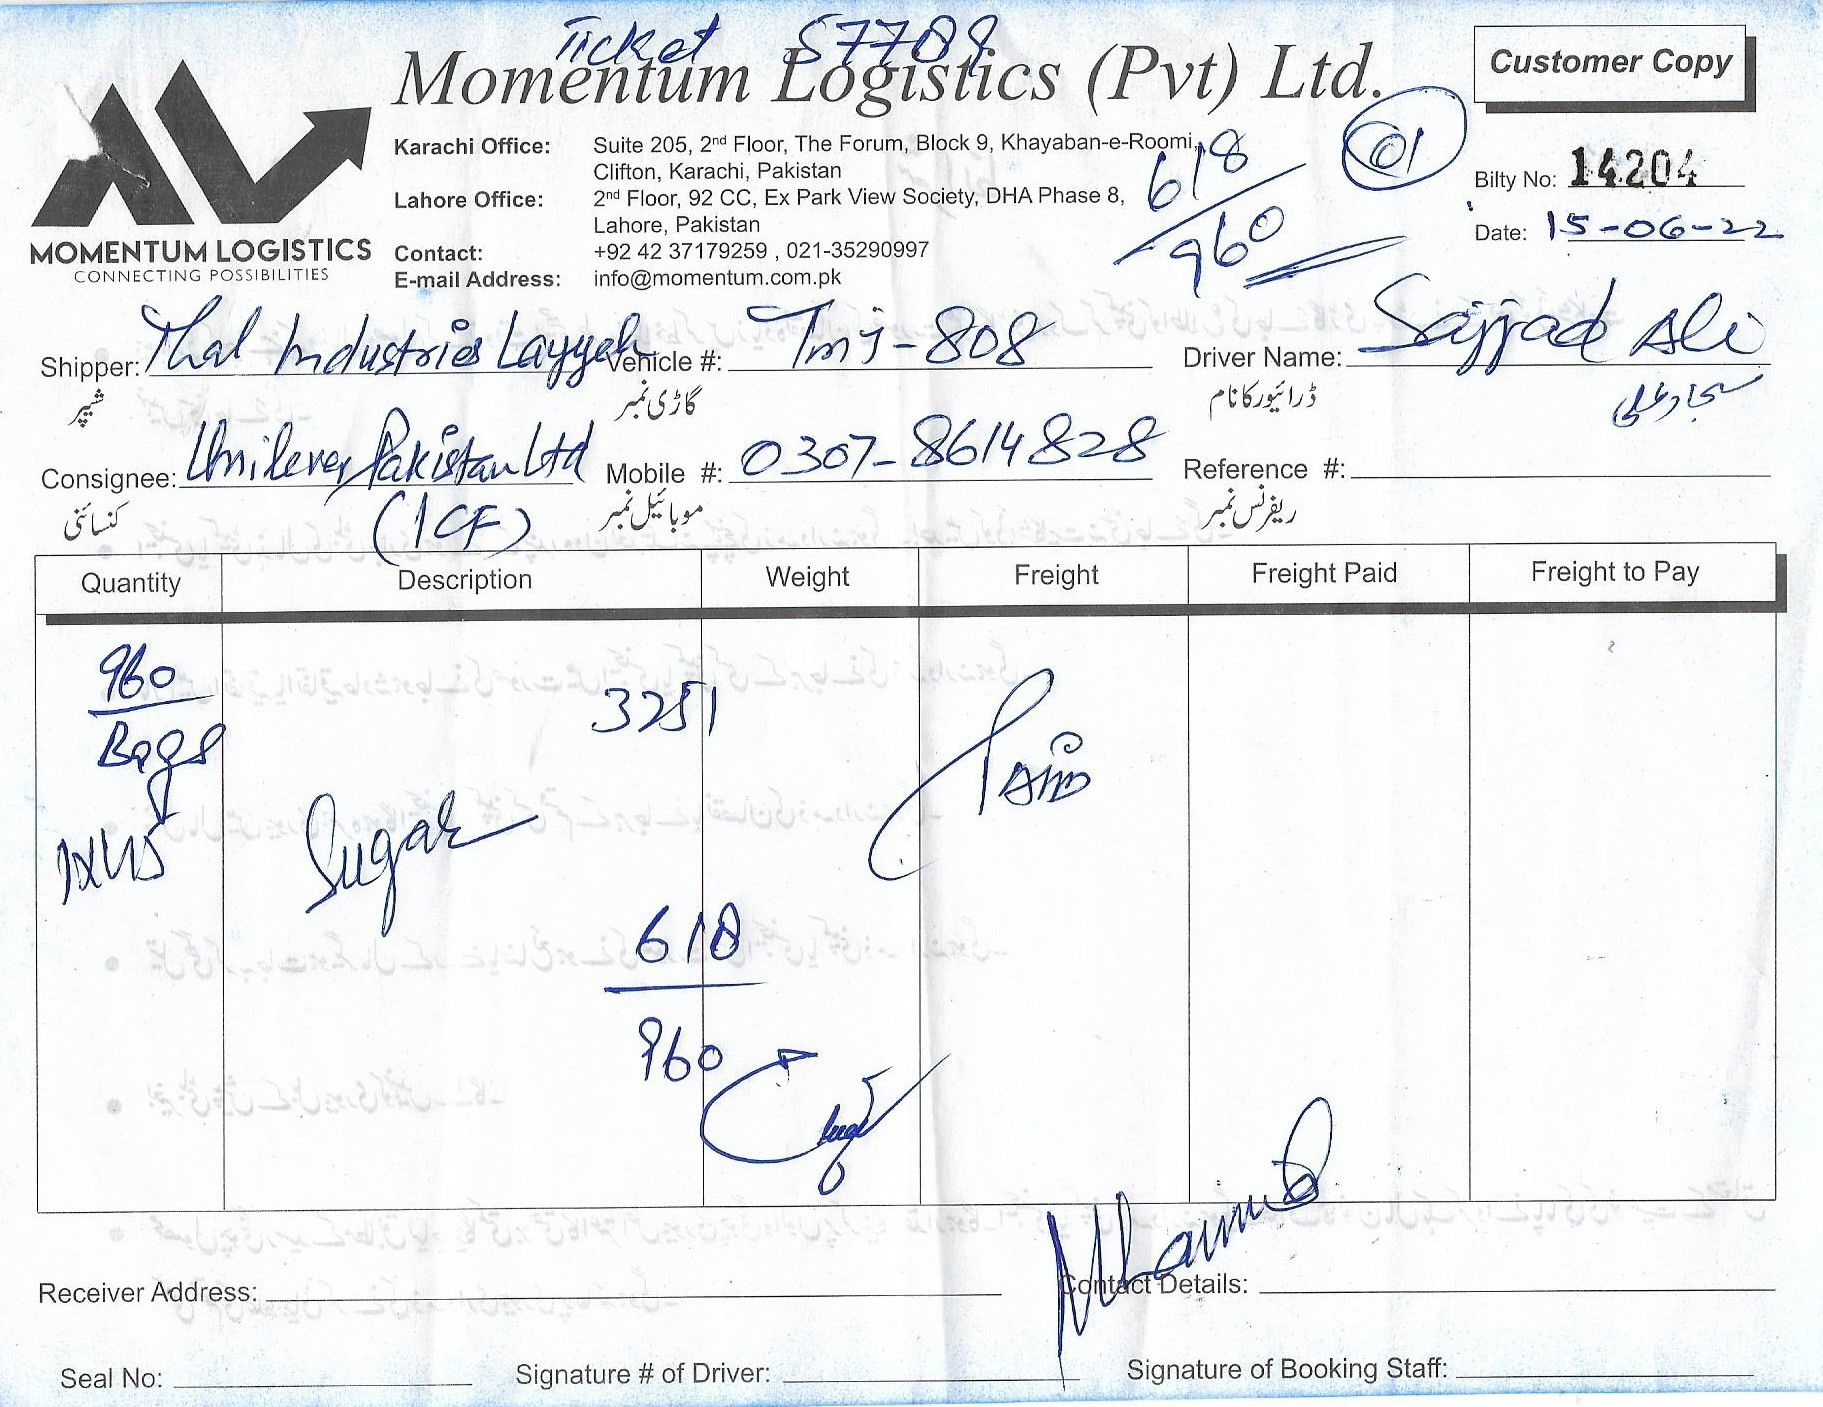 Ticket 57789
Momentum Logistics (Pvt) Ltd.
Customer Copy
MOMENTUM LOGISTICS
CONNECTING POSSIBILITIES
Karachi Office: Suite 205, 2nd Floor, The Forum, Block 9, Khayaban-e-Roomi,
Clifton, Karachi, Pakistan
Lahore Office: 2nd Floor, 92 CC, Ex Park View Society, DHA Phase 8,
Lahore, Pakistan
Contact: +92 42 37179259 , 021-35290997
E-mail Address: info@momentum.com.pk
618
960
01
Bilty No: 14204
Date: 15-06-22
Shipper: Thal Industries Layyah Vehicle #: TMJ-808 Driver Name: Sajjad Ali
شیپر گاڑی نمبر ڈرائیور کا نام سجاد علی
Consignee: Unilever Pakistan Ltd Mobile #: 0307-8614828 Reference #:
(ICF)
کنسائنی موبائیل نمبر ریفرنس نمبر
Quantity Description Weight Freight Freight Paid Freight to Pay
960 3251
Bags
Sugar
618
960
Receiver Address: Contact Details:
Seal No: Signature # of Driver: Signature of Booking Staff: